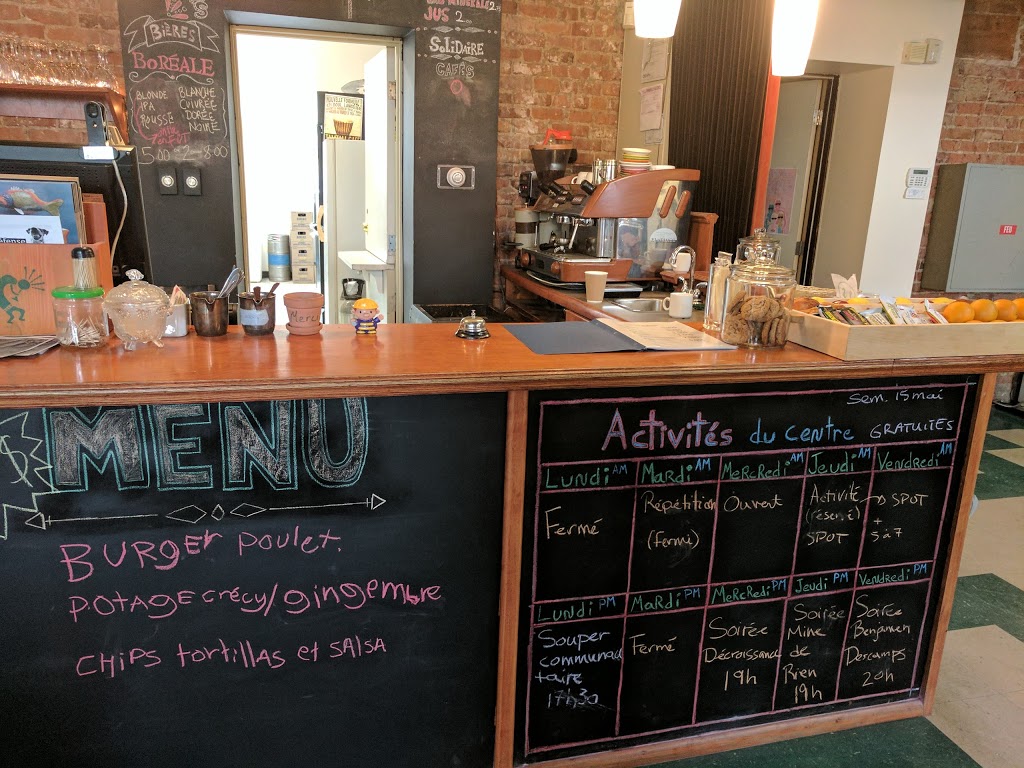 Bières
BORÉALE
BLONDE
IPA
ROUSSE
BLANCHE
CUIVRÉE
DORÉE
NOIRE
5.00
JUS 2.00
SOLIDAIRE
CAFÉS
Merci
FEU
MENU
$
BURGER POULET.
POTAGE CRÉCY/gingembre
CHIPS tortillas et SALSA
sem. 15 mai
Activités du Centre GRATUITES
LUNDI AM
MARDI AM
MERCREDI AM
JEUDI AM
VENDREDI AM
Fermé
Répétition
(Fermé)
Ouvert
Activité
(réservé)
SPOT
→ SPOT
+
5 à 7
LUNDI PM
MARDI PM
MERCREDI PM
JEUDI PM
VENDREDI PM
Souper
communau
taire
17h30
Fermé
Soirée
Décroissance
19h
Soirée
Mine
de
Rien
19h
Soirée
Benjamin
Descamps
20h